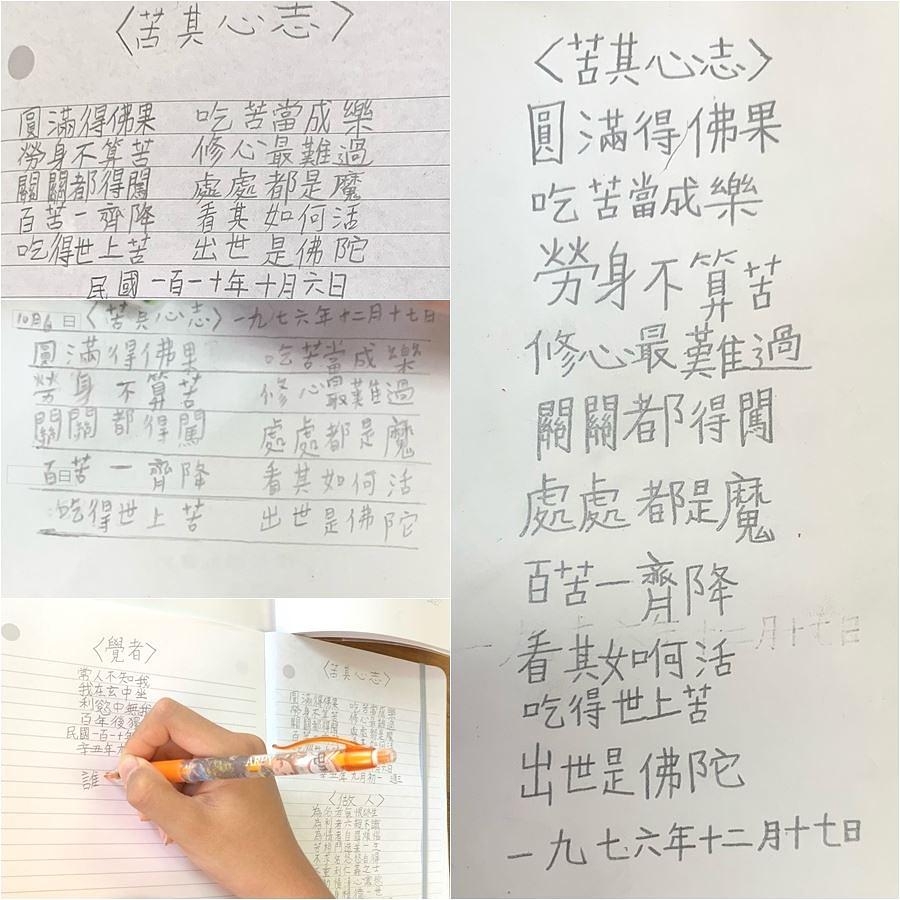 〈苦其心志〉
圓滿得佛果 吃苦當成樂
勞身不算苦 修心最難過
關關都得闖 處處都是魔
百苦一齊降 看其如何活
吃得世上苦 出世是佛陀
民國一百一十年十月六日
10月6日〈苦其心志〉一九七六年十二月十七日
圓滿得佛果 吃苦當成樂
勞身不算苦 修心最難過
關關都得闖 處處都是魔
百苦一齊降 看其如何活
吃得世上苦 出世是佛陀
〈覺者〉
常人不知我
我在玄中坐
利慾中無我
百年後猶
民國一百一十年
辛丑年九
誰
〈苦其心志〉
圓滿得佛果 吃苦當成樂
九月初一
〈做人〉
〈苦其心志〉
圓滿得佛果
吃苦當成樂
勞身不算苦
修心最難過
關關都得闖
處處都是魔
百苦一齊降
看其如何活
吃得世上苦
出世是佛陀
一九七六年十二月十七日